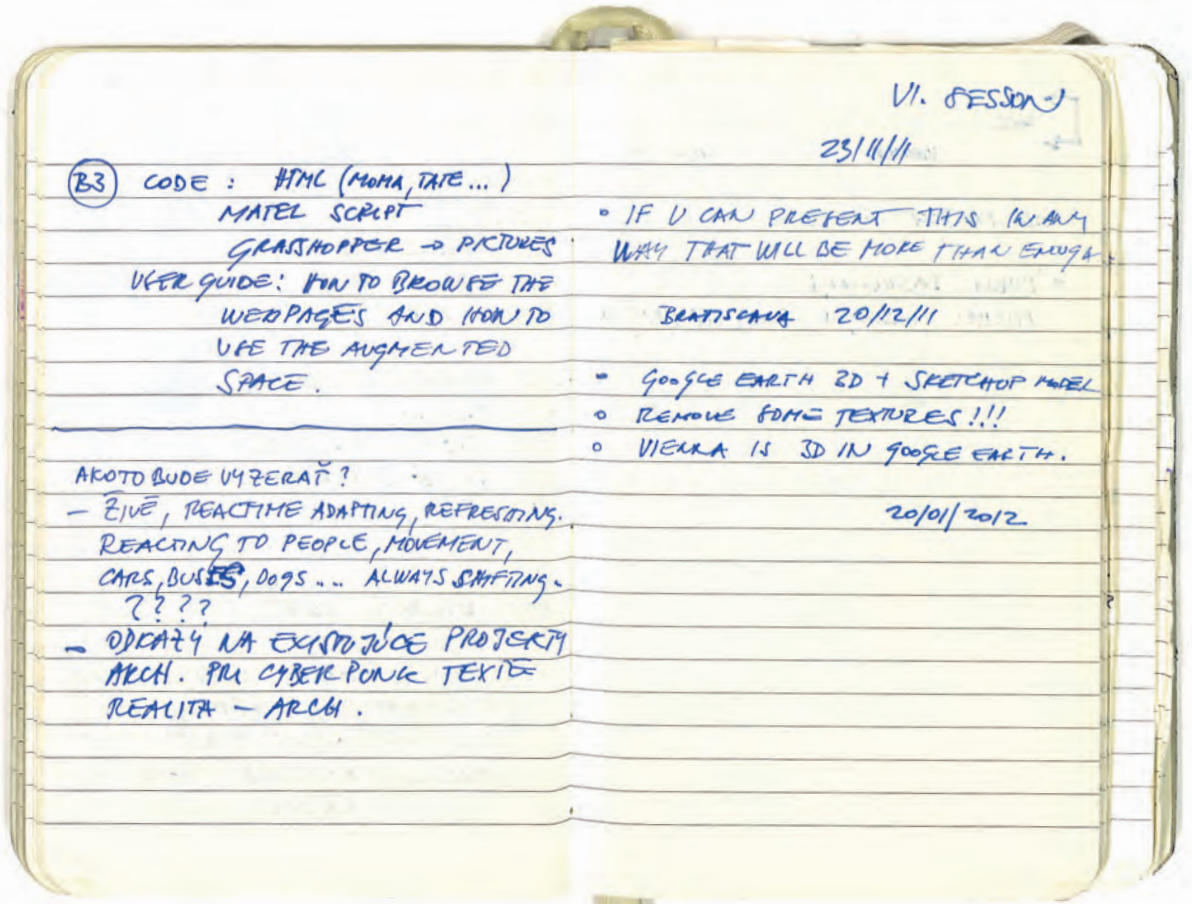 B3 CODE : HTML (MOMA, TATE...)
MATEL SCRIPT
GRASSHOPPER → PICTURES
USER GUIDE: HOW TO BROWSE THE
WEBPAGES AND HOW TO
USE THE AUGMENTED
SPACE.
AKO TO BUDE VYZERAŤ?
– ŽIVÉ, REACTIME ADAPTING, REFRESHING.
REACTING TO PEOPLE, MOVEMENT,
CARS, BUSES, DOGS ... ALWAYS SHIFTING.
????
– ODKAZY NA EXISTUJÚCE PROJEKTY
ARCH. PRI CYBERPUNK TEXTE
REALITA – ARCH.
VI. SESSION
23/11/11
• IF U CAN PRESENT THIS IN ANY
WAY THAT WILL BE MORE THAN ENOUGH.
BRATISLAVA 20/12/11
• GOOGLE EARTH 3D + SKETCHUP MODEL
• REMOVE SOME TEXTURES!!!
• VIENNA IS 3D IN GOOGLE EARTH.
20/01/2012